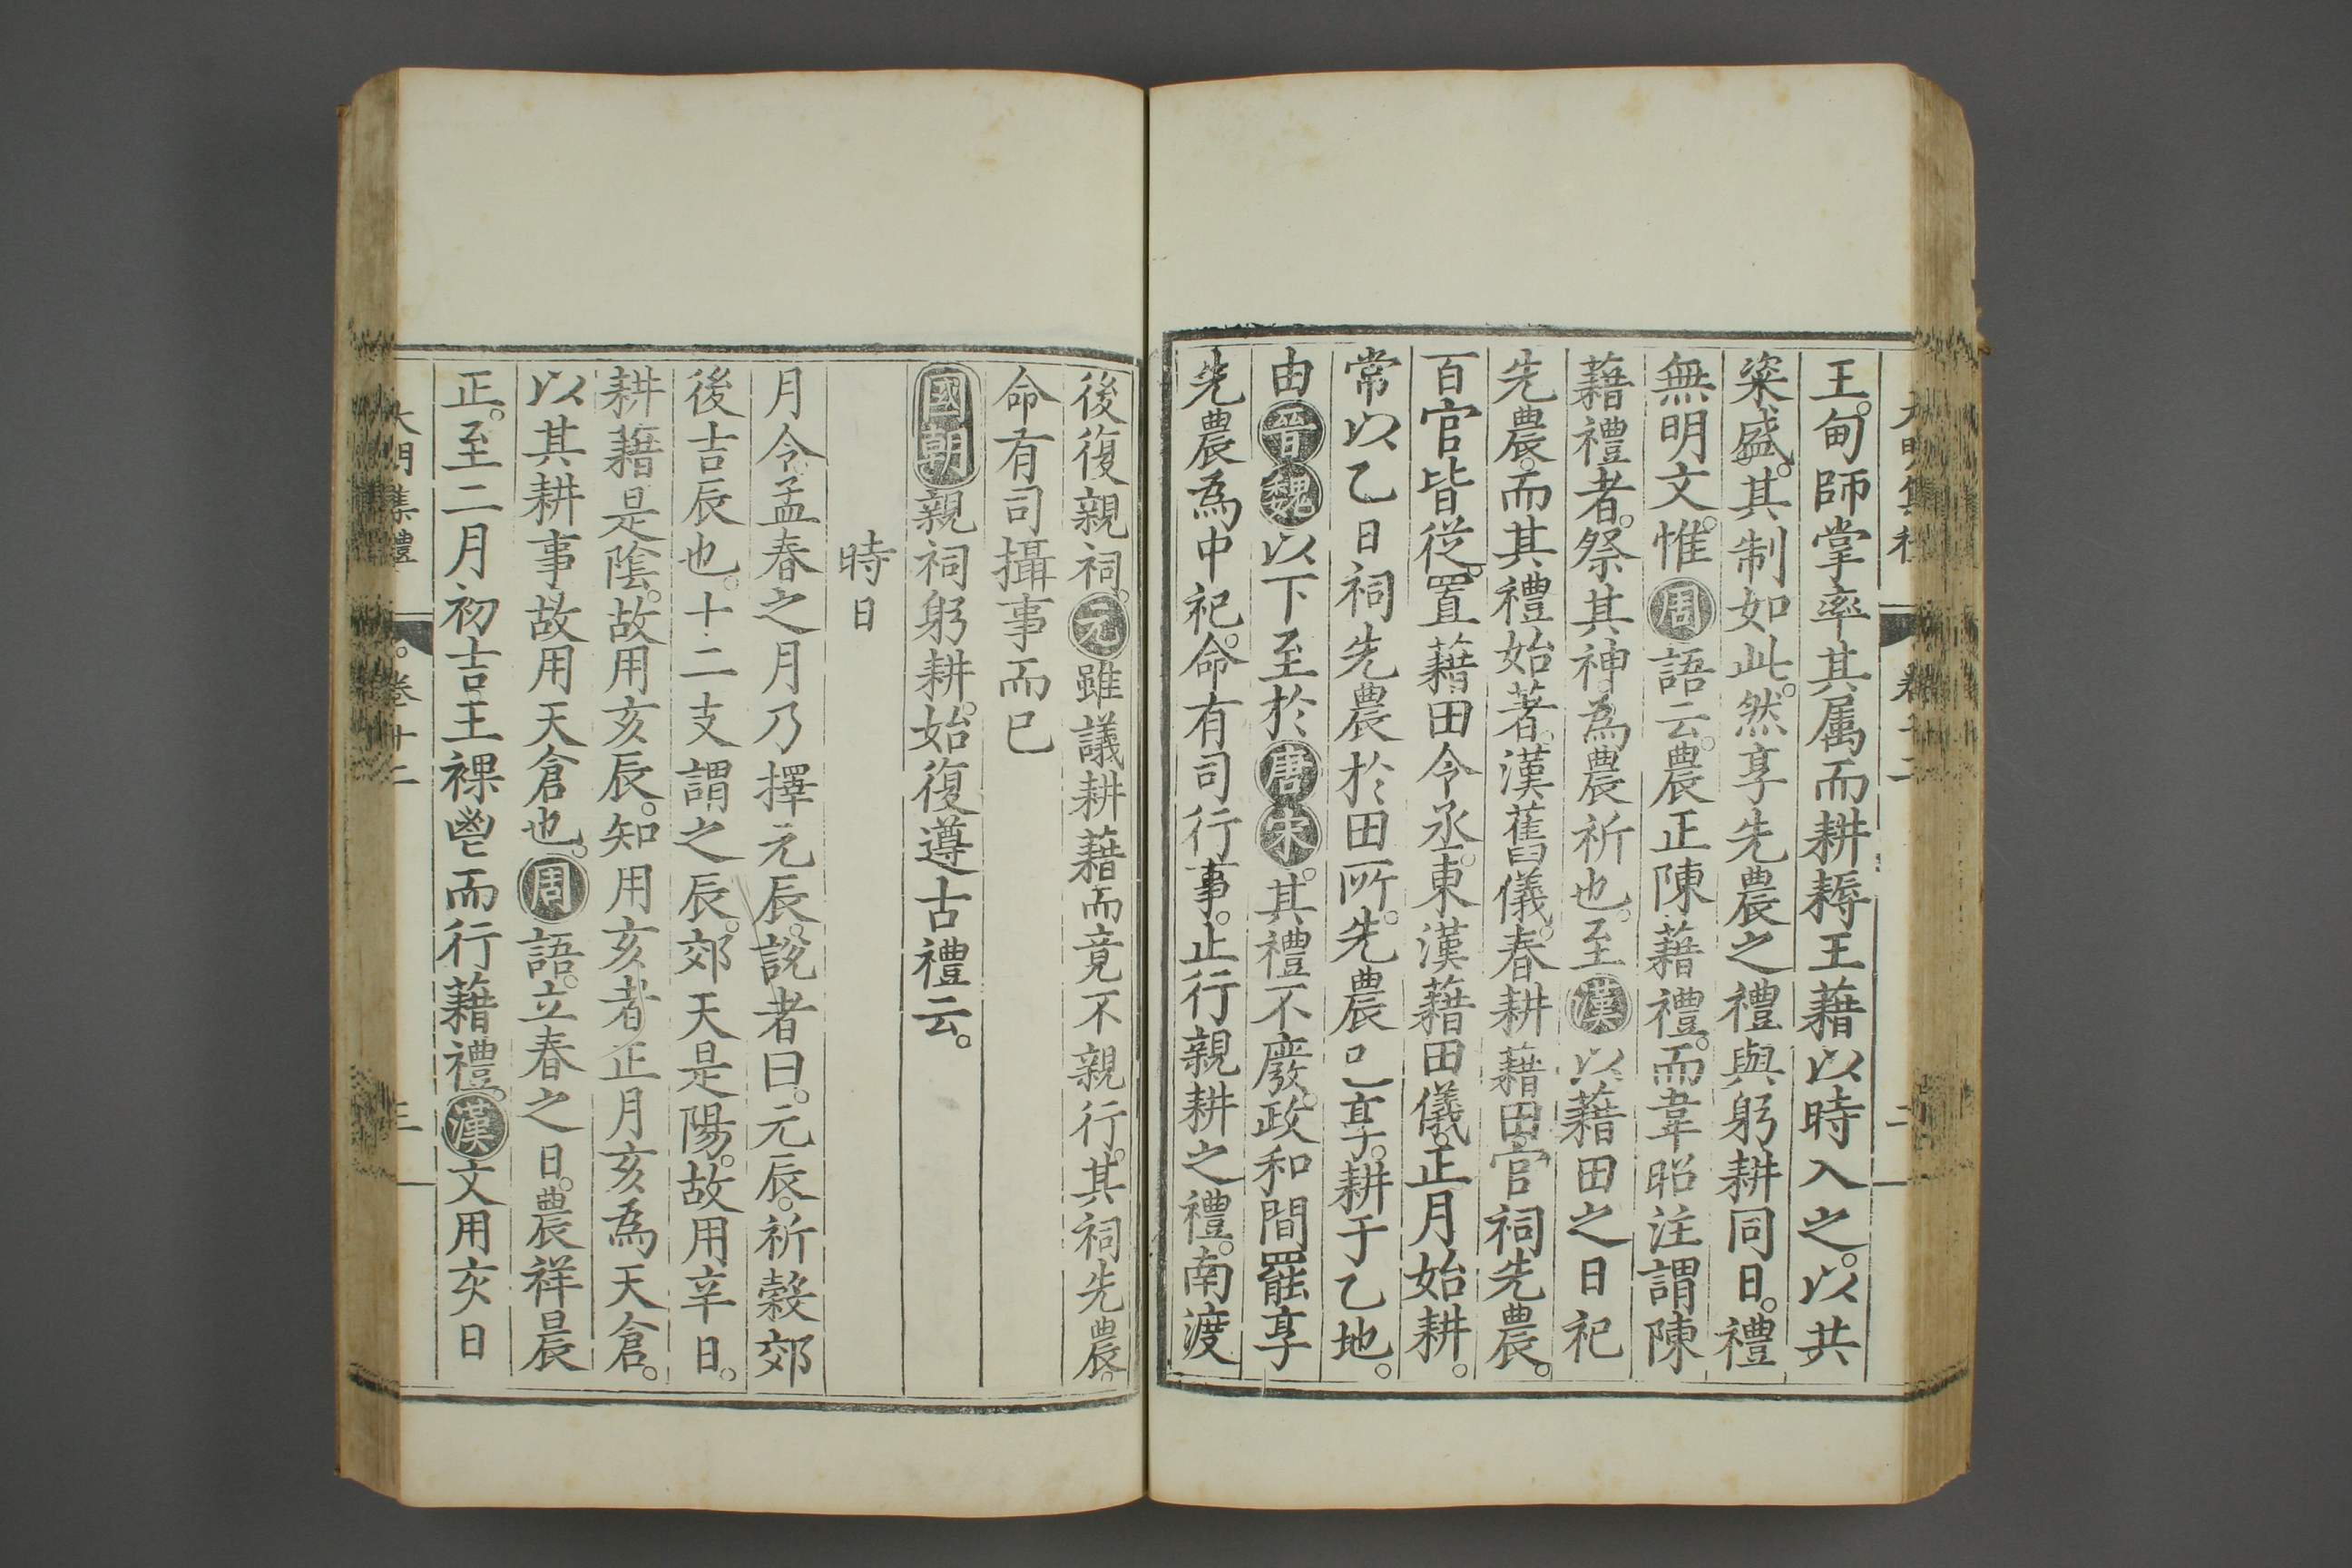 大明集禮 卷十二 二
王。甸師掌率其属而耕耨王藉以時入之。以共
粢盛。其制如此。然享先農之禮與躬耕同日。禮
無明文。惟周語云。農正陳藉禮。而韋昭注謂陳
藉禮者。祭其神。為農祈也。至漢以藉田之日祀
先農。而其禮始著。漢舊儀。春耕藉田。官祠先農。
百官皆從。置藉田令丞。東漢藉田儀。正月始耕。
常以乙日祠先農於田所。先農已享。耕于乙地。
由晉魏以下至於唐宋。其禮不廢。政和間罷享
先農為中祀。命有司行事。止行親耕之禮。南渡
後復親祠。元雖議耕藉而竟不親行。其祠先農。
命有司攝事而已
國朝親祠躬耕。始復遵古禮云。
時日
月令。孟春之月乃擇元辰。說者曰。元辰。祈穀郊
後吉辰也。十二支謂之辰。郊天是陽。故用辛日。
耕藉是陰。故用亥辰。知用亥者正月亥為天倉。
以其耕事故用天倉也。周語。立春之日。農祥晨
正。至二月初吉王祼鬯而行藉禮。漢文用亥日
大明集禮 卷十二 三